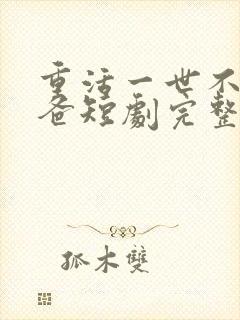 重活一世不
爸短劇完整
孤木雙